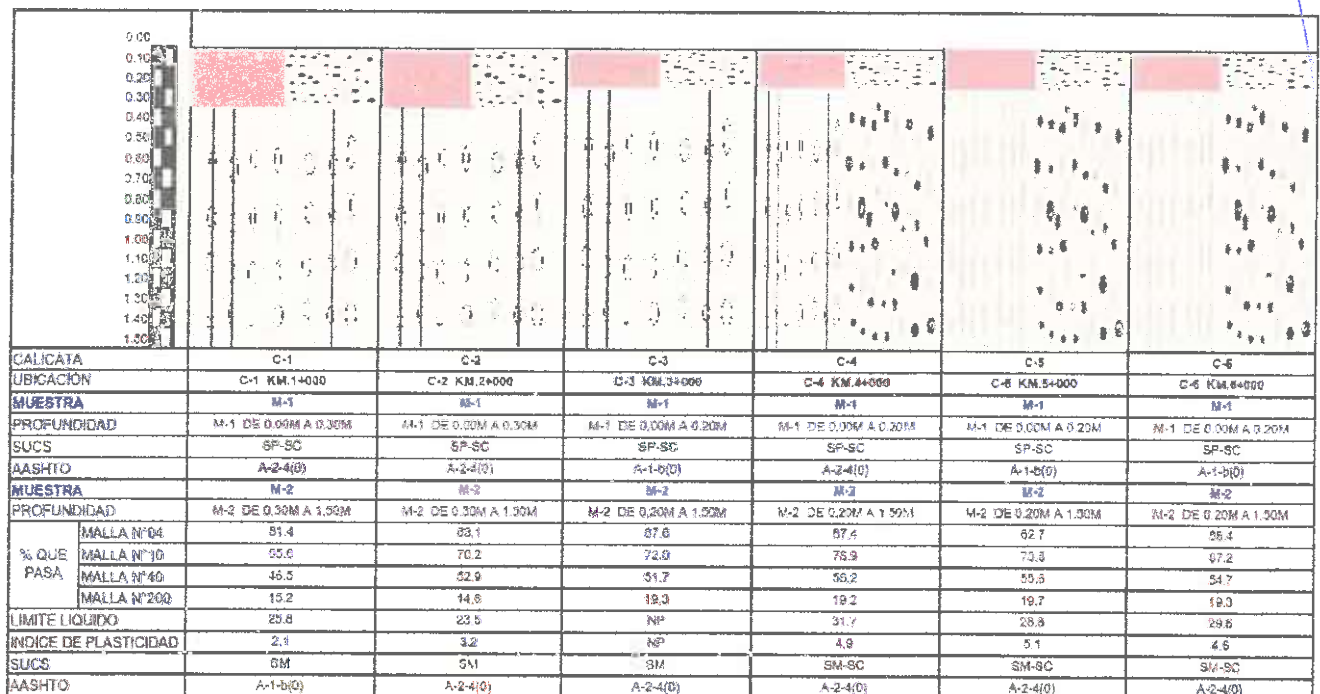 0.00
0.10
0.20
0.30
0.40
0.50
0.60
0.70
0.80
0.90
1.00
1.10
1.20
1.30
1.40
1.50
CALICATA C-1 C-2 C-3 C-4 C-5 C-6
UBICACIÓN C-1 KM.1+000 C-2 KM.2+000 C-3 KM.3+000 C-4 KM.4+000 KM.5+000 KM.6+000
MUESTRA M-1 M-1 M-1 M-1 M-1 M-1
PROFUNDIDAD M-1 DE 0.00M A 0.30M M-1 DE 0.00M A 0.30M M-1 DE 0.00M A 0.20M M-1 DE 0.00M A 0.20M M-1 DE 0.00M A 0.20M M-1 DE 0.00M A 0.20M
SUCS SP-SC SP-SC SP-SC SP-SC SP-SC SP-SC
AASHTO A-2-4(0) A-2-4(0) A-1-b(0) A-2-4(0) A-1-b(0) A-1-b(0)
MUESTRA M-2 M-2 M-2 M-2 M-2 M-2
PROFUNDIDAD M-2 DE 0.30M A 1.50M M-2 DE 0.30M A 1.50M M-2 DE 0.20M A 1.50M M-2 DE 0.20M A 1.50M M-2 DE 0.20M A 1.50M M-2 DE 0.20M A 1.50M
% QUE PASA
MALLA N°04
MALLA N°10 70.2
MALLA N°40 46.5 52.9 51.7
MALLA N°200 15.2 14.6 19.3 19.2 19.7 19.3
LIMITE LIQUIDO 25.8 23.5 NP 31.7 28.8
INDICE DE PLASTICIDAD 2.1 3.2 NP 4.9 5.1 4.6
SUCS SM SM SM SM-SC SM-SC SM-SC
AASHTO A-1-b(0) A-2-4(0) A-2-4(0) A-2-4(0) A-2-4(0) A-2-4(0)